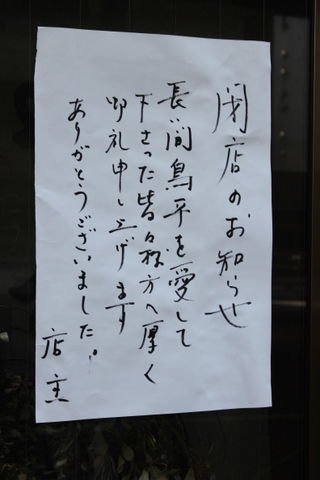 閉店のお知らせ
長い間鳥平を愛して
下さった皆々様方へ厚く
御礼申し上げます
ありがとうございました。
店主